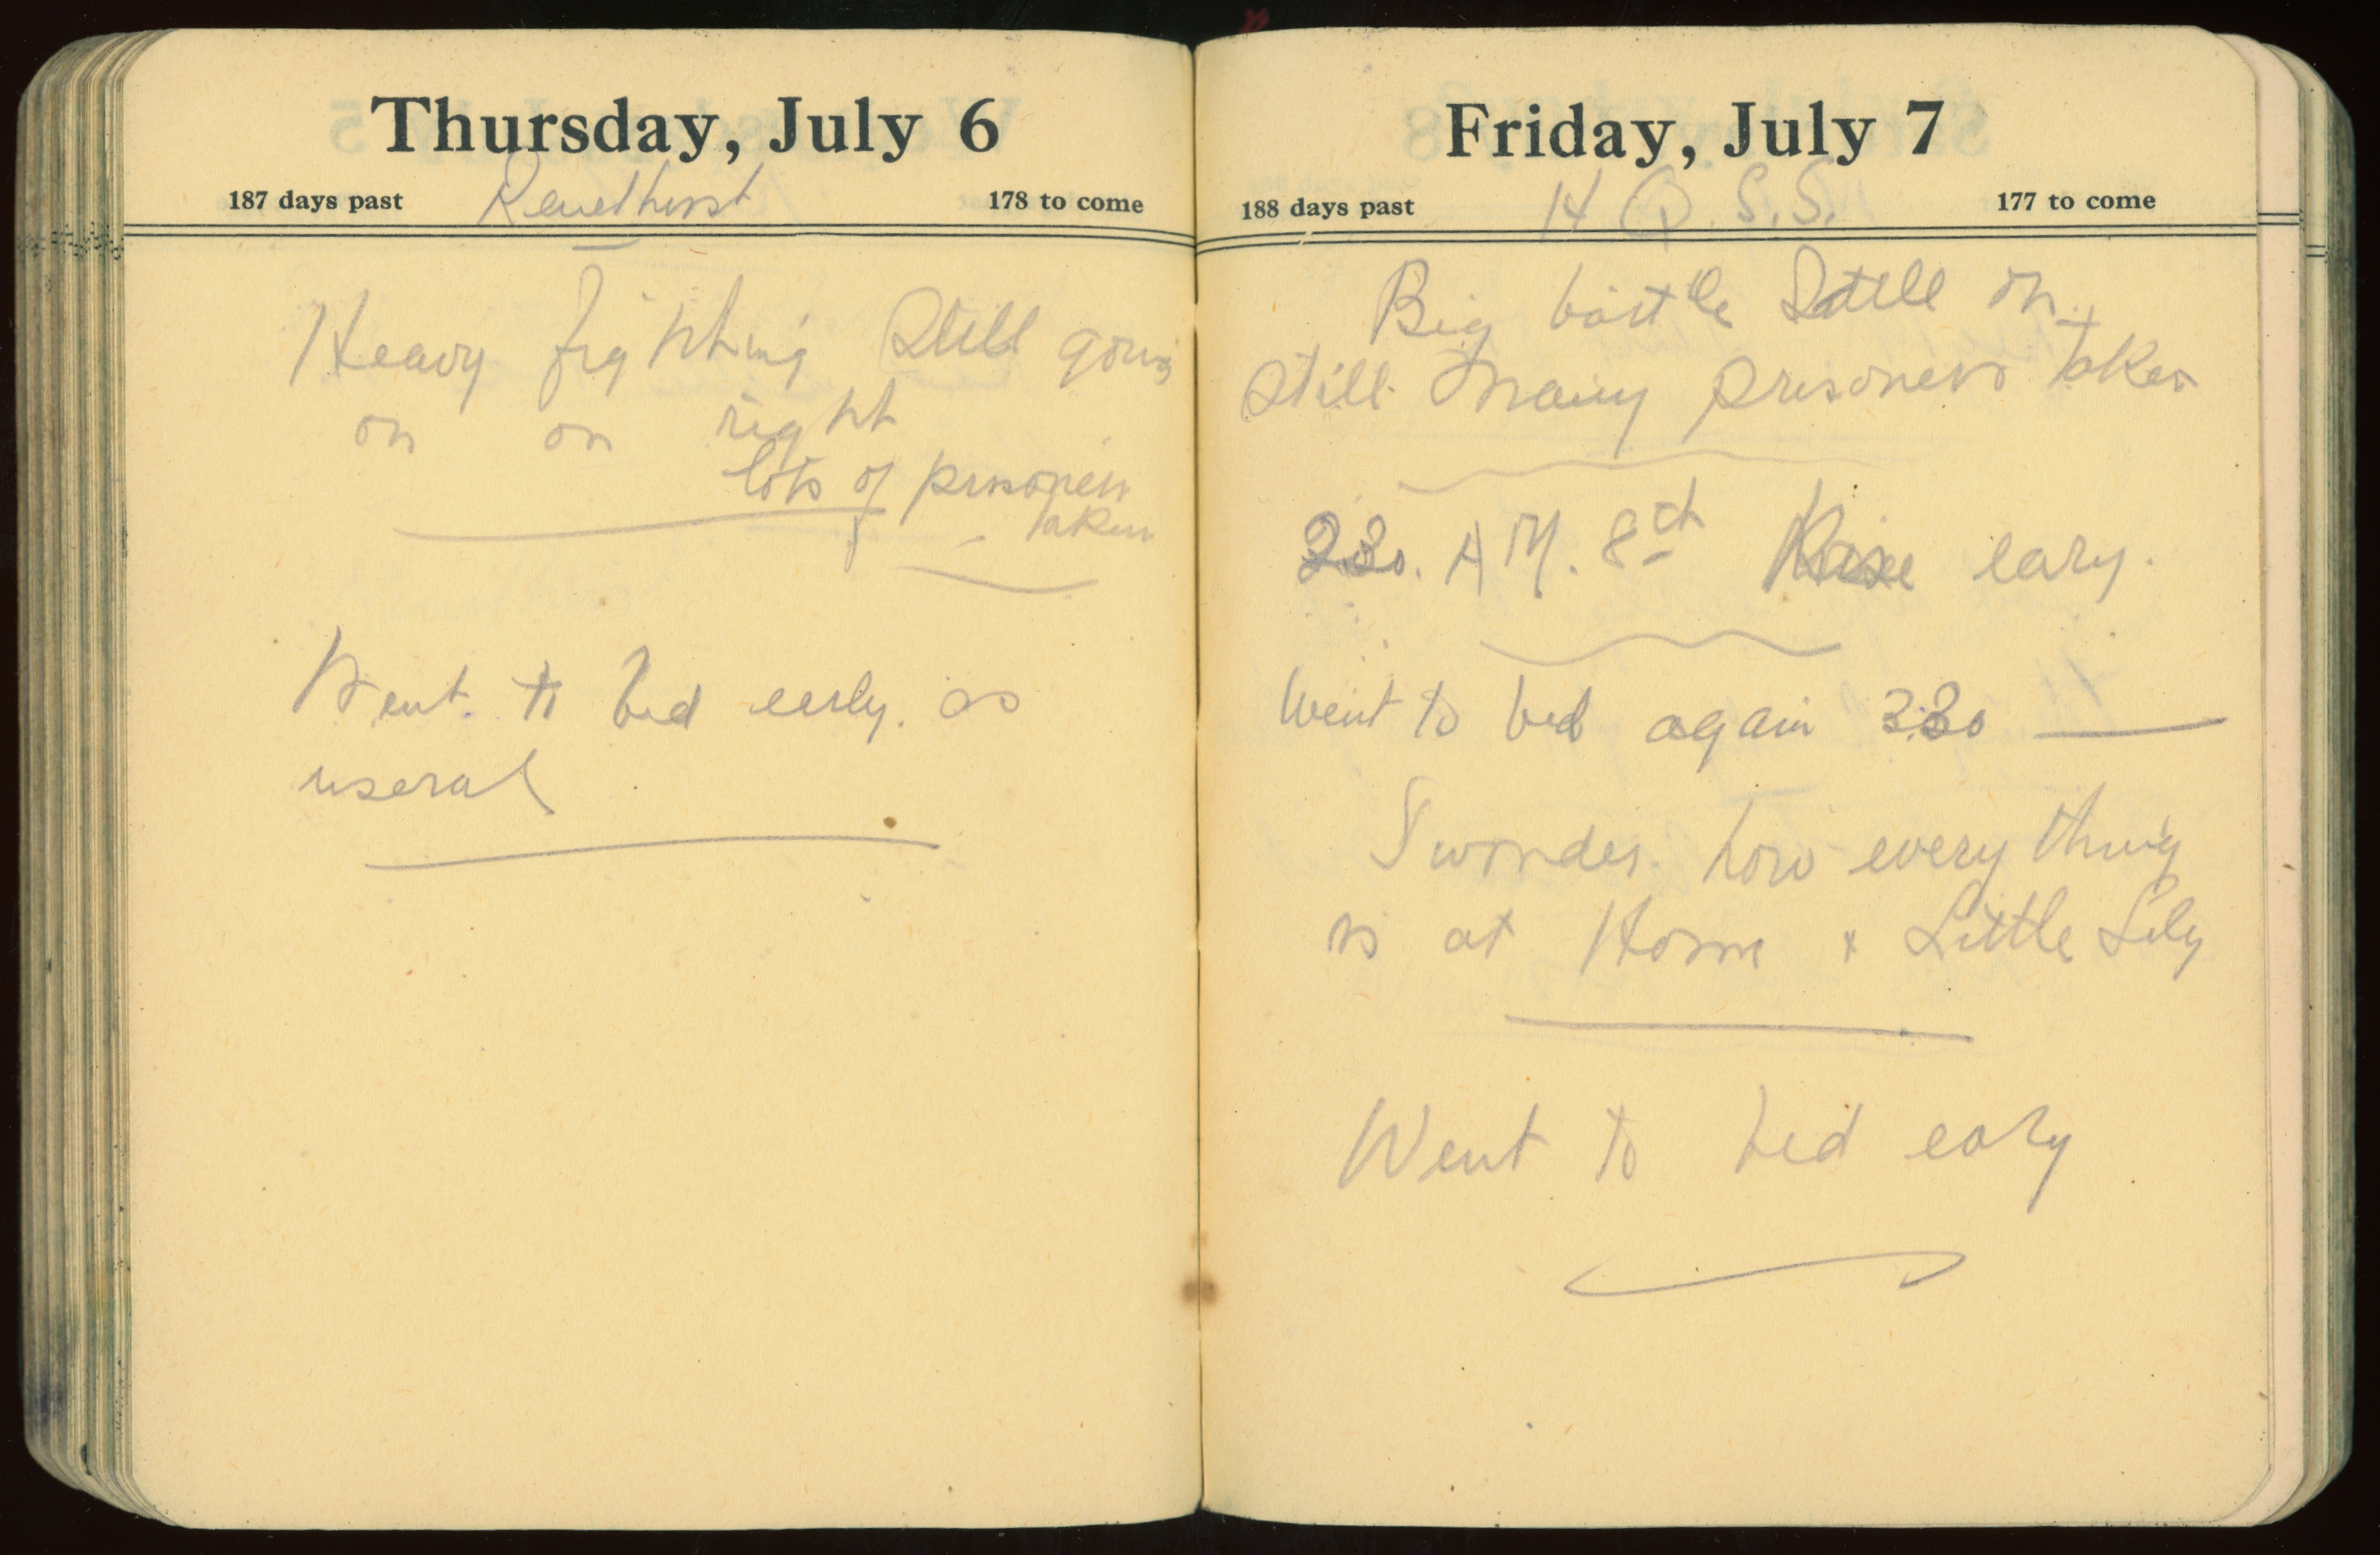 Thursday, July 6
187 days past 178 to come
Heavy fighting Still going
on on right
lots of prisoners
taken
Went to bed early. as
useral
Friday, July 7
188 days past 177 to come
H Q. S. S.
Big battle Still on
Still many prisoners taken
2.30. A M. 8th Rise eary.
Went to bed again 3.30
I wonder how every thing
is at Home & Little Lily
Went to bed eary